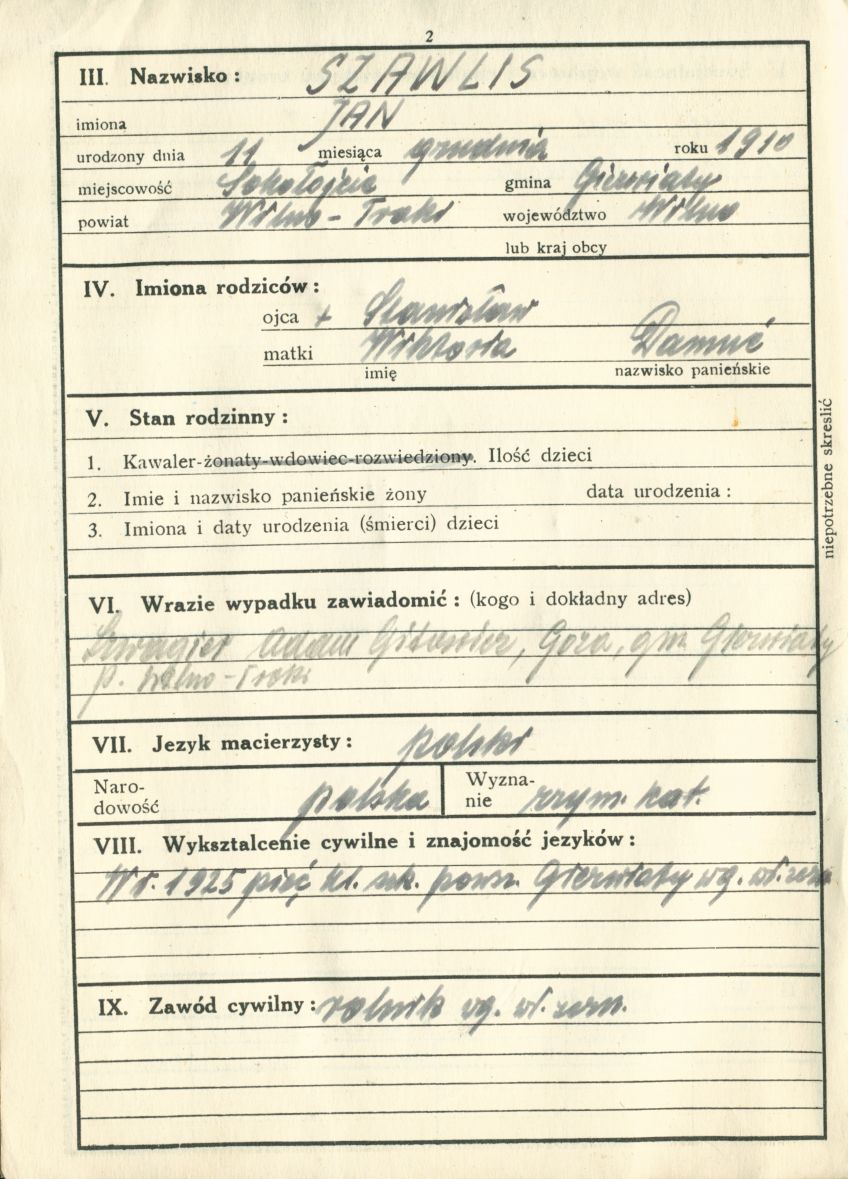 2
III. Nazwisko: SZAWLIS
imiona JAN
urodzony dnia 11 miesiąca grudnia roku 1910
miejscowość gmina Gierwiaty
powiat Wilno-Troki województwo Wilno
lub kraj obcy
IV. Imiona rodziców:
ojca + Stanisław
matki Wiktoria Damuć
imię nazwisko panieńskie
V. Stan rodzinny:
1. Kawaler-żonaty-wdowiec-rozwiedziony. Ilość dzieci
2. Imie i nazwisko panieńskie żony data urodzenia:
3. Imiona i daty urodzenia (śmierci) dzieci
niepotrzebne skreślić
VI. Wrazie wypadku zawiadomić: (kogo i dokładny adres)
Szwagier Adam Gitowicz, Góra, gm. Gierwiaty
p. Wilno-Troki
VII. Jezyk macierzysty: polski
Naro- polska Wyzna- rzym. kat.
dowość nie
VIII. Wyksztalcenie cywilne i znajomość języków:
W r. 1925 pięć kl. szk. powsz. Gierwiaty wg. wł. zezn
IX. Zawód cywilny: rolnik wg. wł. zezn.